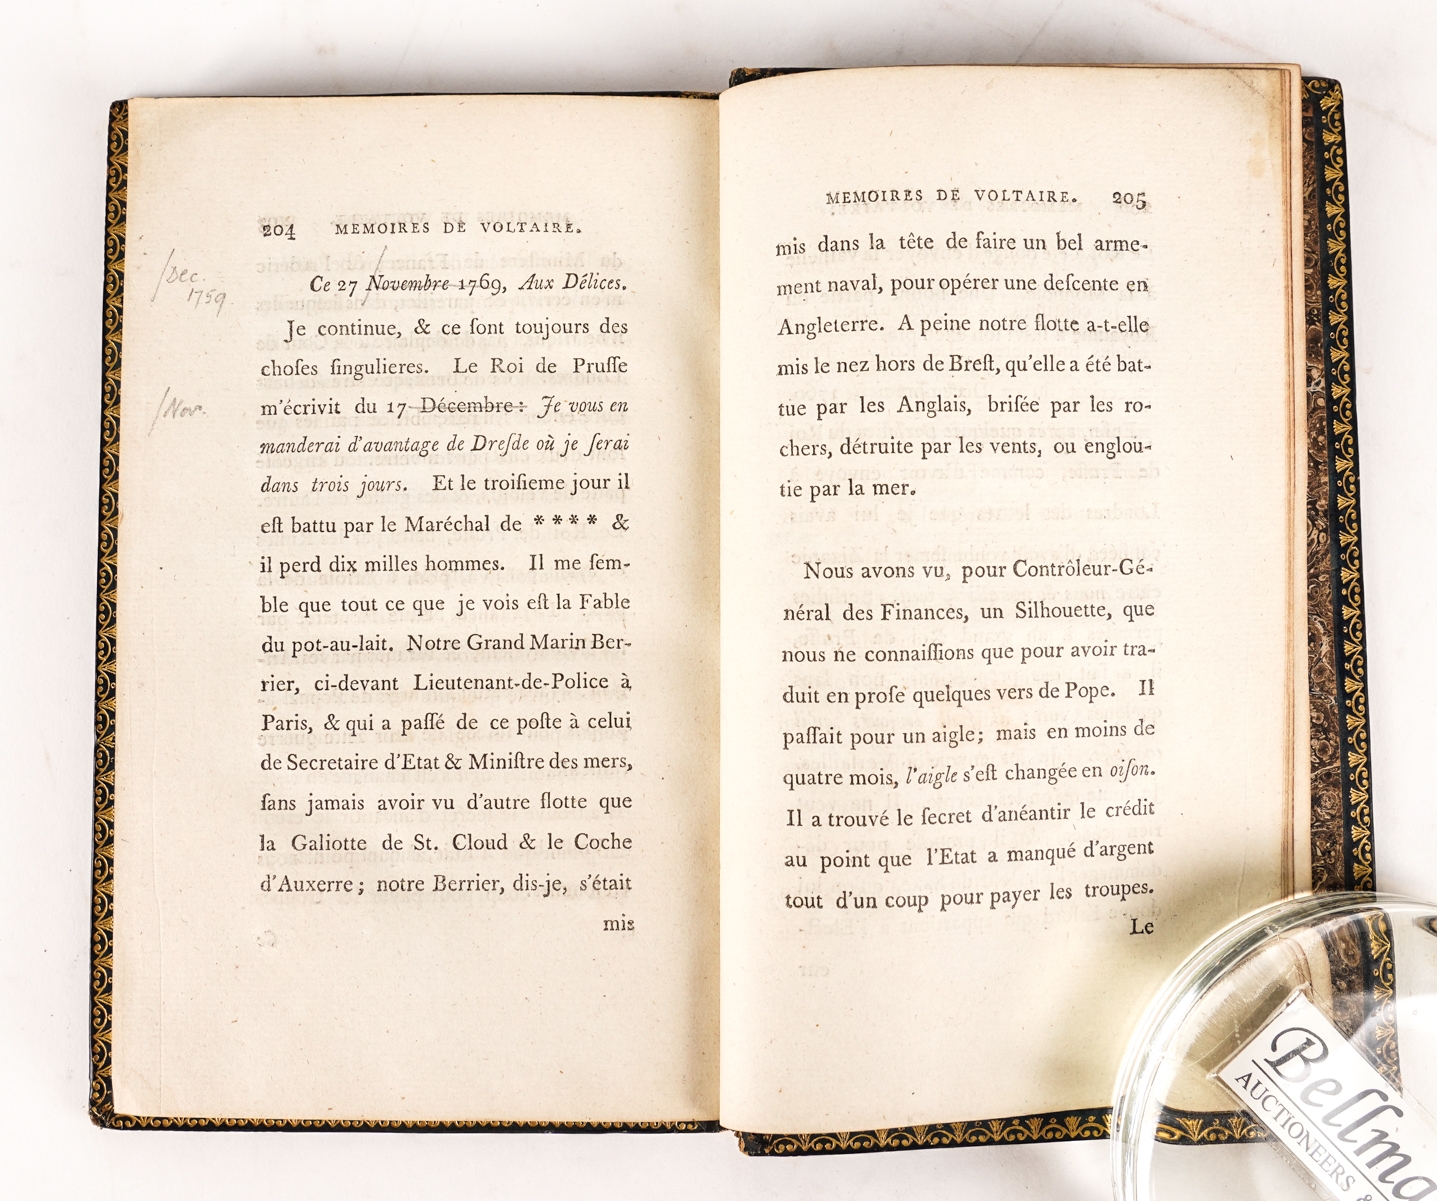 204 MEMOIRES DE VOLTAIRE.
/Dec.
1759.
Ce 27 Novembre 1769, Aux Délices.
Je continue, & ce ſont toujours des
choſes ſingulieres. Le Roi de Pruſſe
/Nov.
m'écrivit du 17 Décembre: Je vous en
manderai d'avantage de Dreſde où je ſerai
dans trois jours. Et le troiſieme jour il
eſt battu par le Maréchal de * * * * &
il perd dix milles hommes. Il me ſem-
ble que tout ce que je vois eſt la Fable
du pot-au-lait. Notre Grand Marin Ber-
rier, ci-devant Lieutenant-de-Police à
Paris, & qui a paſſé de ce poſte à celui
de Secretaire d'Etat & Miniſtre des mers,
ſans jamais avoir vu d'autre flotte que
la Galiotte de St. Cloud & le Coche
d'Auxerre; notre Berrier, dis-je, s'était
mis
MEMOIRES DE VOLTAIRE. 205
mis dans la tête de faire un bel arme-
ment naval, pour opérer une deſcente en
Angleterre. A peine notre flotte a-t-elle
mis le nez hors de Breſt, qu'elle a été bat-
tue par les Anglais, briſée par les ro-
chers, détruite par les vents, ou englou-
tie par la mer.
Nous avons vu, pour Contrôleur-Gé-
néral des Finances, un Silhouette, que
nous ne connaiſſions que pour avoir tra-
duit en proſe quelques vers de Pope. Il
paſſait pour un aigle; mais en moins de
quatre mois, l'aigle s'eſt changée en oiſon.
Il a trouvé le ſecret d'anéantir le crédit
au point que l'Etat a manqué d'argent
tout d'un coup pour payer les troupes.
Le
Bellma
AUCTIONEERS &